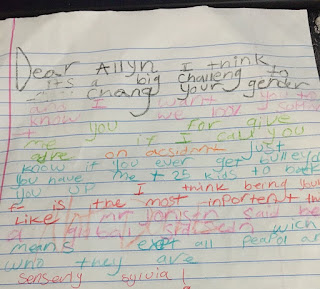 Dear Allyn I think
its a big Challeng to
chang your gender
and I want you to
know we
me you For give
if I call you
on accident Just
know if you ever get bulleyd
you have me + 25 kids to back
you UP I think being your
is the most inportent
Like mr Danisen Said be
a global wich
means all peapol
who they are
senserly sylvia !